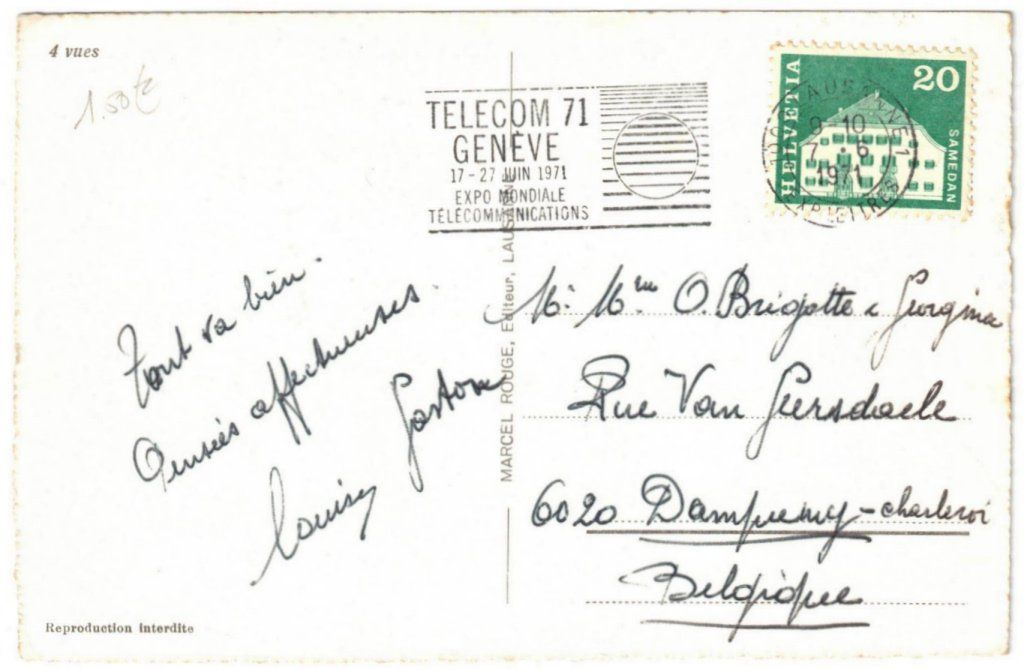 4 vues
1.50€
TELECOM 71
GENÈVE
17-27 JUIN 1971
EXPO MONDIALE
TÉLÉCOMMUNICATIONS
HELVETIA
20
SAMEDAN
LAUSANNE 1
9-10
7.6
1971
EXP LETTRES
Tout va bien.
Pensées affectueuses.
Gaston
Louisy
MARCEL ROUGE, Editeur, LAUSANNE
M. Mme O. Brigotte &
Rue Van
6020 Dampremy-charleroi
Belgique
Reproduction interdite